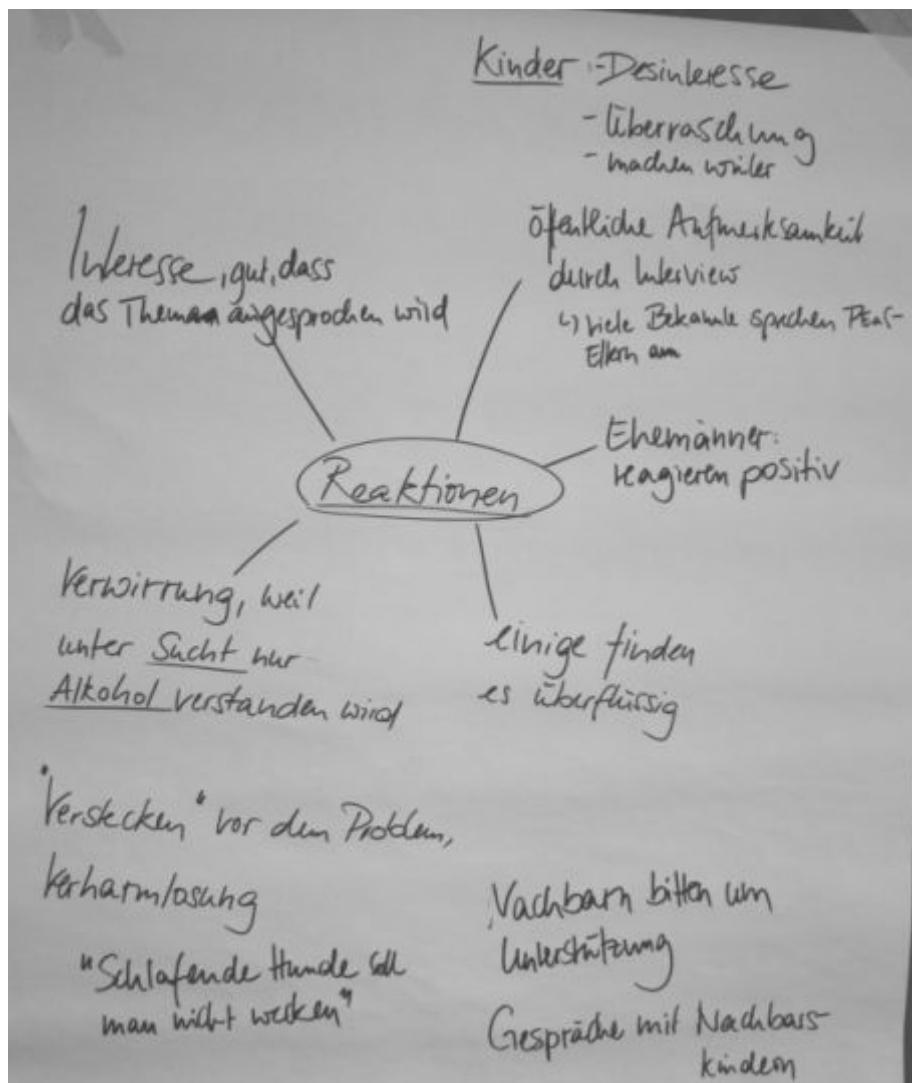 Kinder :- Desinteresse
- Überraschung
- machen weiter
Interesse, gut, dass
das Thema angesprochen wird
öfentliche Aufmerksamkeit
durch Interview
↳ viele Bekannte sprechen PEaS-
Eltern an
Ehemänner:
reagieren positiv
Reaktionen
Verwirrung, weil
unter Sucht nur
Alkohol verstanden wird
einige finden
es überflüssig
"Verstecken" vor dem Problem,
Verharmlosung
"Schlafende Hunde soll
man nicht wecken"
Nachbarn bitten um
Unterstützung
Gespräche mit Nachbars-
kindern